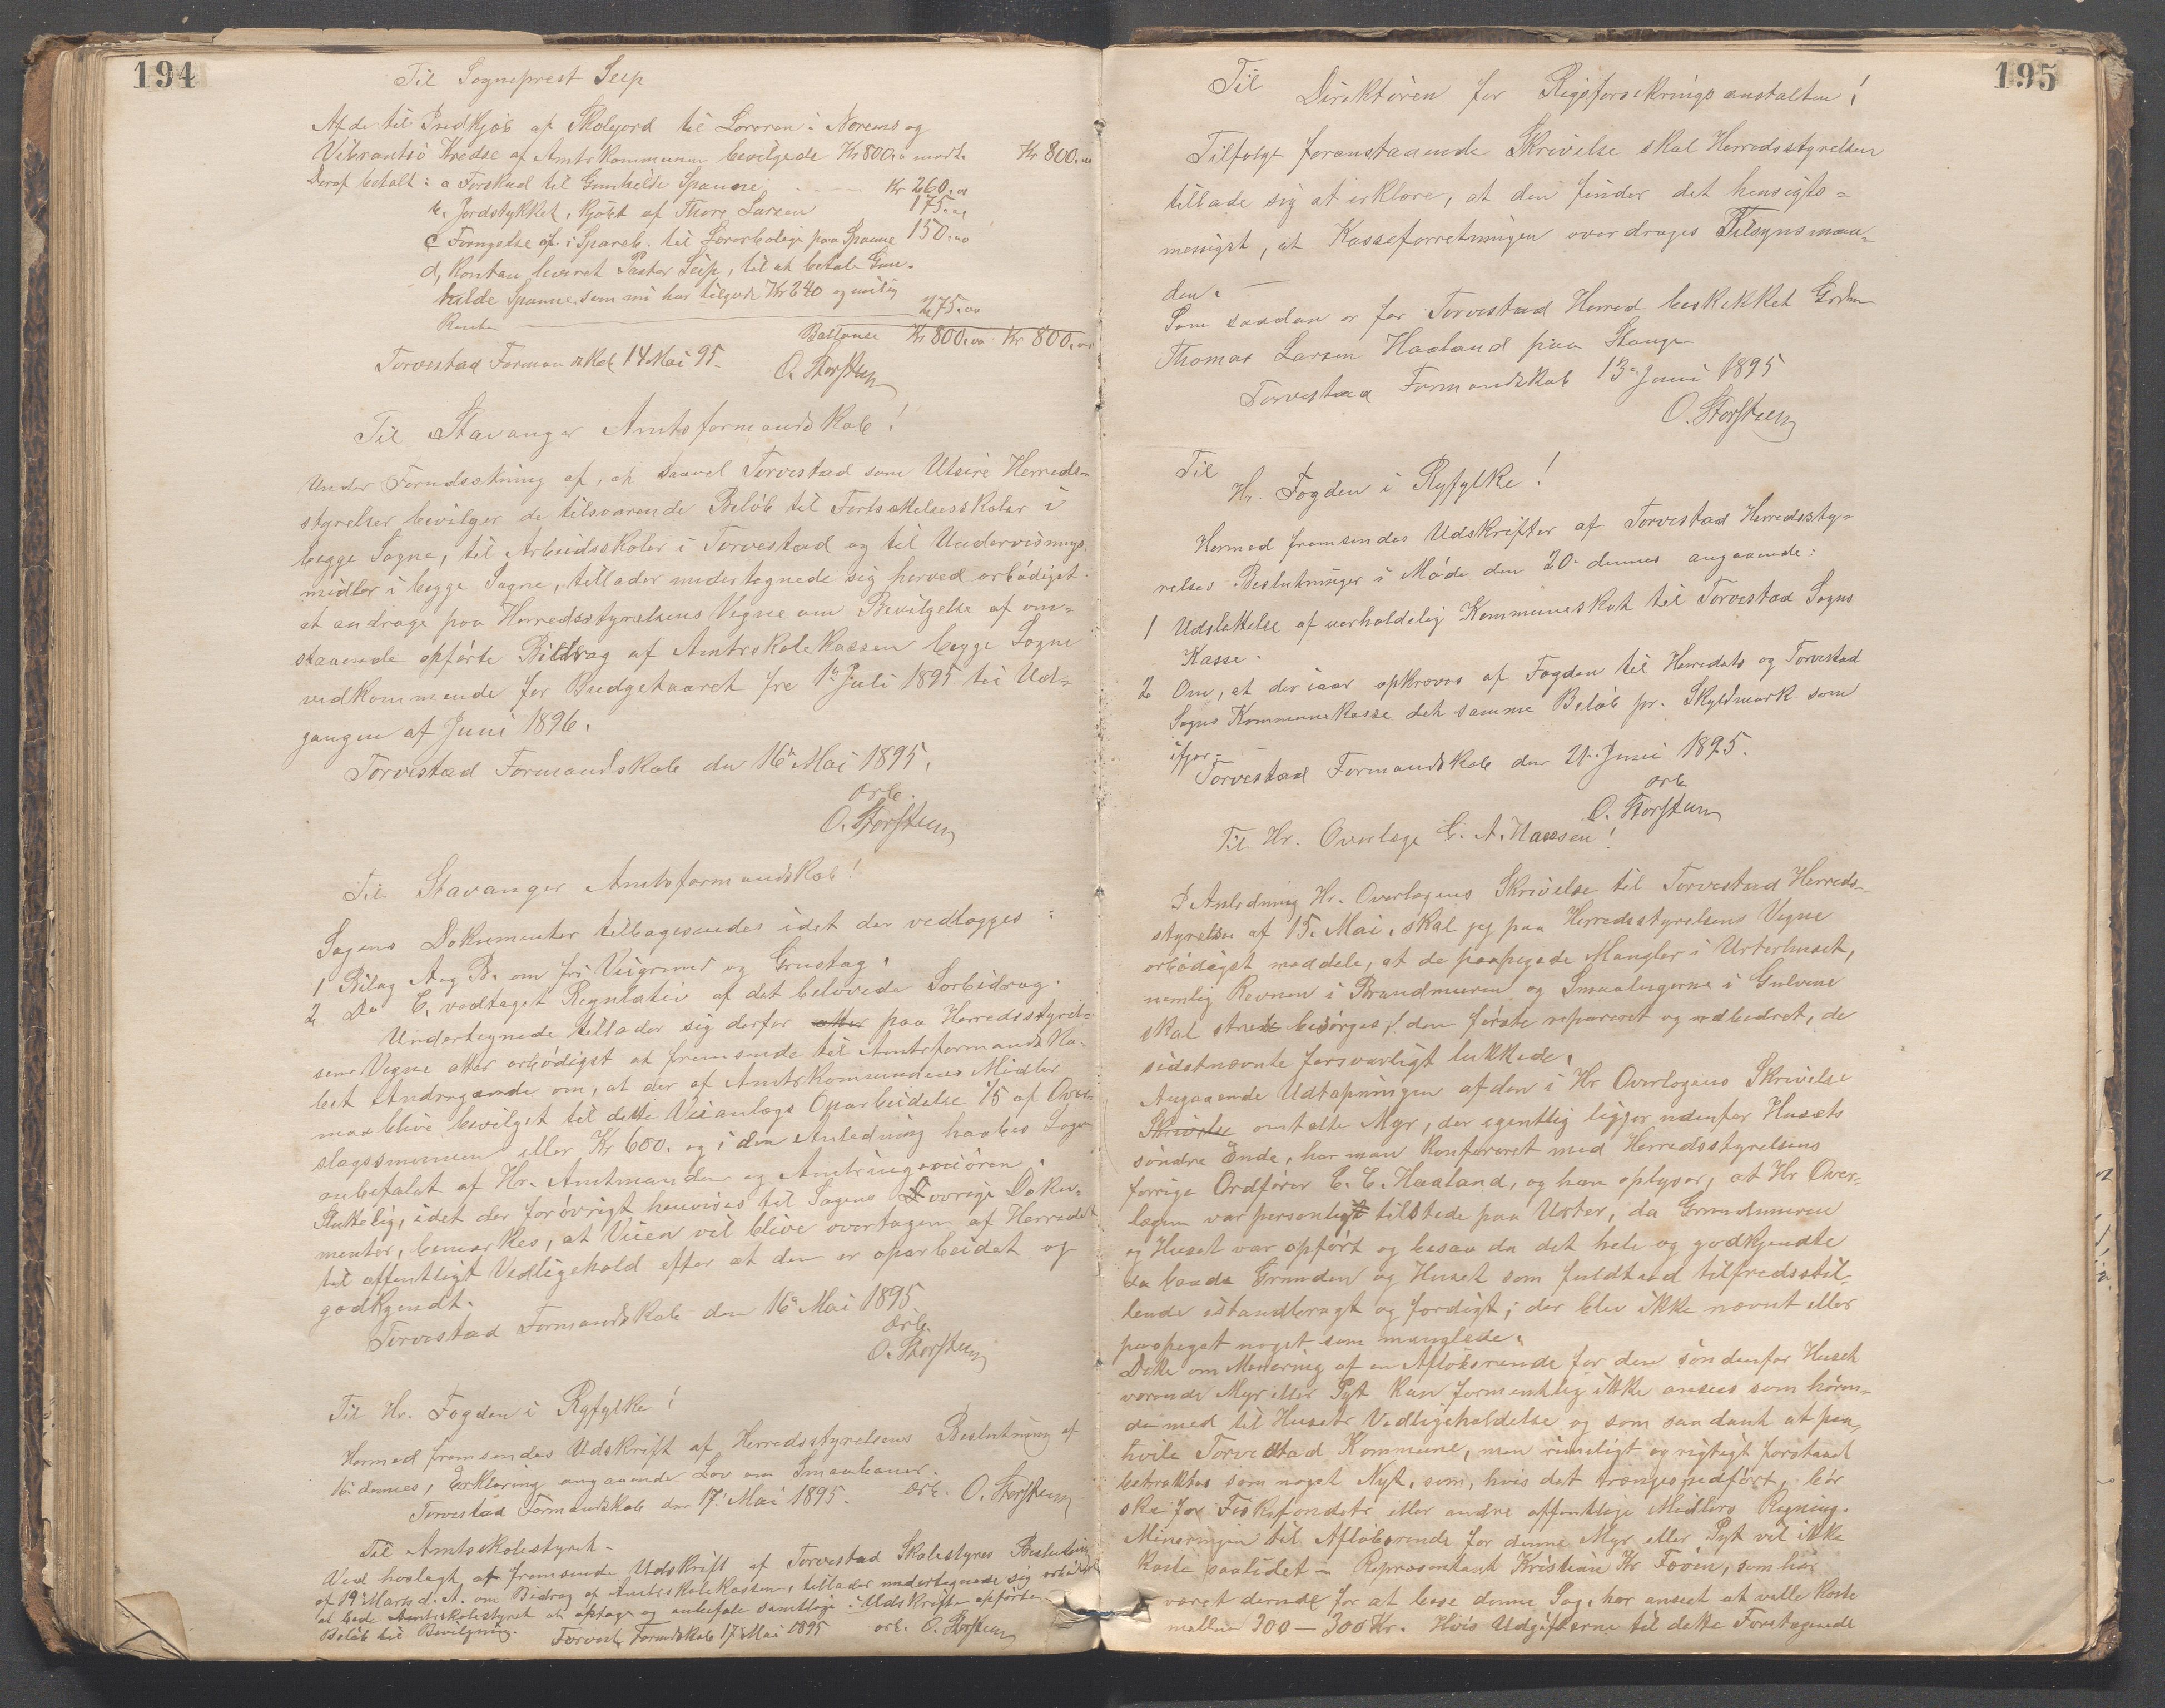 194
Til Sogneprest Seip
Af de til Indkjøb af Skolejord til Læreren i Norems og
Vibrantsö Kredse af Amtskommunen bevilgede Kr 800,00 modt. Kr 800,00
Deraf betalt: a Forskud til Gunhilde Spanne Kr 260,00
b. Jordstykket, kjøbt af Thore Larsen 175,00
c Fornyelse af i Spareb. til Lærerbolige paa Spanne 150,00
d, Kontan leveret Pastor Seip, til at betale Gun-
hilde Spanne, som nu har tilgode Kr 240 og
Renter 275,00
Ballanse Kr 800,00 Kr 800,00
Torvestad Formandskab 14 Mai 95.
O. Storsteen
Til Stavanger Amtsformandskab!
Under Forudsætning af, at saavel Torvestad som Utsire Herreds-
styrelser bevilger de tilsvarende Beløb til Fortsættelsesskoler i
begge Sogne, til Arbeidsskoler i Torvestad og til Undervisnings-
midler i begge Sogne, tillader undertegnede sig herved ærbødigst
at andrage paa Herredsstyrelsens Vegne om Bevilgelse af om-
staaende opførte Bidrag af Amtsskolekassen begge Sogne
vedkommende for Budgetaaret fra 1ste Juli 1895 til Ud-
gangen af Juni 1896.
Torvestad Formandskab den 16de Mai 1895.
ærb.
O. Storsteen
Til Stavanger Amtsformandskab!
Sagens Dokumenter tilbagesendes idet der vedlægges:
1 Bilag A og B. om fri Veigrund og Grustag.
2 Do C. vedtaget Regulativ af det belovede Særbidrag.
Undertegnede tillader sig derfor paa Herredsstyrel-
sens Vegne atter ærbödigst at fremsende til Amtsformandska-
bet Andragende om, at der af Amtskommunens Midler
maa blive bevilget til dette Veianlægs Oparbeidelse 1/5 af Over-
slagssummen eller Kr 600. og i den Anledning haabes Sagen
anbefalet af Hr. Amtmanden og Amtsingeniören.
Sluttelig, idet der forøvrigt henvises til Sagens øvrige Doku-
menter, bemærkes, at Veien vil blive overtagen af Herredet
til offentligt Vedligehold efter at den er oparbeidet og
godkjendt.
Torvestad Formandskab den 16de Mai 1895
ærb.
O. Storsteen
Til Hr. Fogden i Ryfylke!
Hermed fremsendes Udskrift af Herredsstyrelsens Beslutning af
16. dennes, Erklæring angaaende Lov om Smaabaner.
Torvestad Formandskab den 17. Mai 1895. ærb. O. Storsteen
Til Amtsskolestyret.
Ved hoslagt at fremsende Udskrift af Torvestad Skolestyres Beslutning
af 19 Marts d. A. om Bidrag af Amtsskolekassen, tillader undertegnede sig ærbödigst
at bede Amtsskolestyret at optage og anbefale samtlige i Udskriften opførte
Beløb til Bevilgning. Torvest. Formdskab 17 Mai 1895 ærb. O. Storsteen
195
Til Direktören for Rigsforsikringsanstalten!
Tilfølge foranstaaende Skrivelse skal Herredsstyrelsen
tillade sig at erklære, at den finder det hensigts-
mæsigst, at Kasseforretningen overdrages Tilsynsman-
den.
Som saadan er for Torvestad Herred beskikket Grdm
Thomas Larsen Haaland paa Stange
Torvestad Formandskab 13de Juni 1895
O. Storsteen
Til
Hr. Fogden i Ryfylke!
Hermed fremsendes Udskrifter af Torvestad Herredssty-
relses Beslutninger i Møde den 20. dennes angaaende:
1 Udslettelse af uerholdelig Kommuneskat til Torvestad Sogns
Kasse.
2 Om, at der iaar opkræves af Fogden til Herredets og Torvestad
Sogns Kommunekasse det samme Beløb pr. Skyldmark som
ifjor.
Torvestad Formandskab den 21. Juni 1895.
ærb
O. Storsteen
Til Hr. Overlæge G. A. Hansen!
I Anledning Hr. Overlægens Skrivelse til Torvestad Herreds-
styrelse af 15. Mai, skal jeg paa Herredsstyrelsens Vegne
ærbödigst meddele, at de paapegede Mangler i Urterhuset,
nemlig Revnen i Brandmuren og Smaalugerne i Gulvene
skal straks besörges, den første repareret og udbedret, de
sidstnævnte forsvarligt lukkede.
Angaaende Udtapningen af den i Hr Overlægens Skrivelse
Skrivelse omtalte Myr, der egentlig ligger udenfor Husets
söndre Ende, har man konfereret med Herredsstyrelsens
forrige Ordförer C. C. Haaland, og han oplyser, at Hr Over-
lægen var personligt tilstede paa Urter, da Grundmuren
og Huset var opført og besaa da det hele og godkjendte
da baade Grunden og Huset som fuldtud tilfredsstil-
lende istandbragt og færdigt; der blev ikke nævnt eller
paapeget noget som manglede.
Dette om Minering af en Aflöbsrende for den söndenfor Huset
værende Myr eller Pyt kan formentlig ikke ansees som hören-
de med til Husets Vedligeholdelse og som saadant at paa-
hvile Torvestad Kommune, men rimeligt og rigtigt forstaaet
betraktes som noget Nyt, som, hvis det trænges udført, bör
ske for Fiskefondets eller andre offentlige Midlers Regning.
Mineringen til Aflöbsrende for denne Myr eller Pyt vil ikke
koste saalidet — Repræsentant Kristian Kr Føven, som har
været derude for at bese denne Sag, har anseet at ville koste
mellem 200 — 300 Kr. Hvis Udgifterne til dette Foretagende